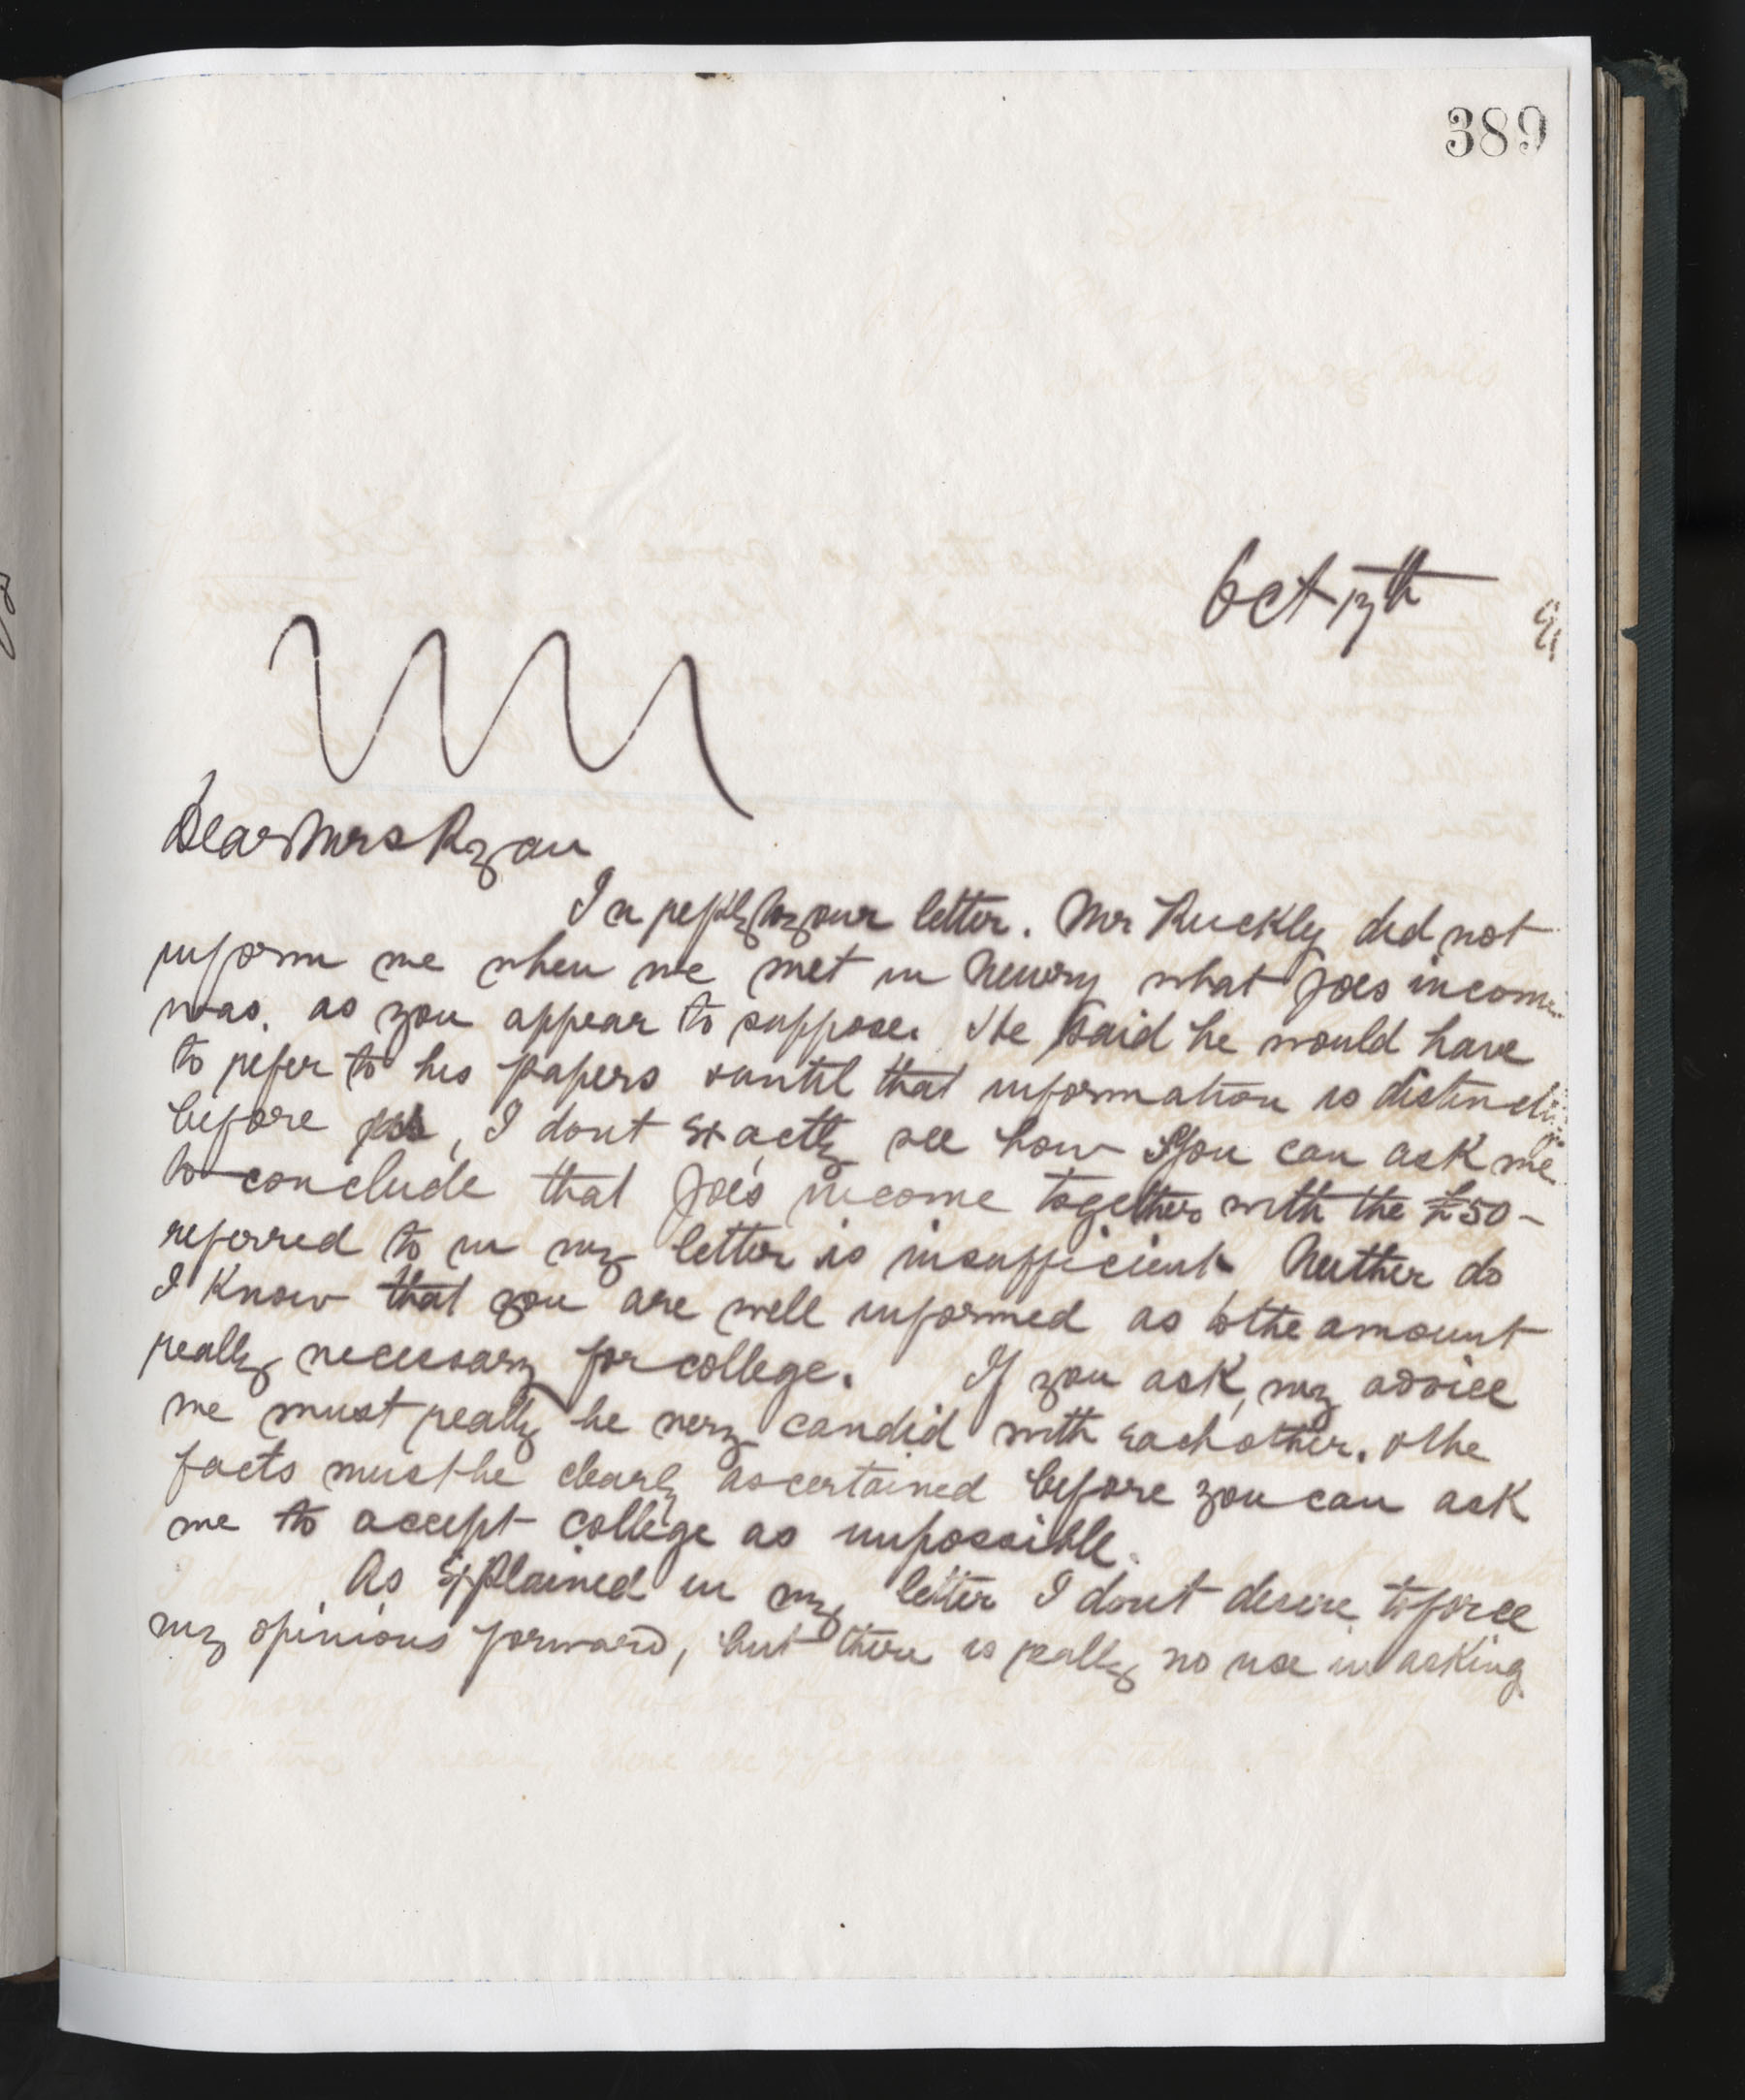 389
Oct 13th
Dear Mrs Ryan
In reply to your letter. Mr Ruckly did not
inform me when we met in Newry what Joes incom
was. as you appear to suppose. He said he would have
to refer to his papers & until that information is distinctly
before us, I dont exactly see how you can ask me
to conclude that Joe's income together with the £50 -
referred to in my letter is insufficient. Neither do
I know that you are well informed as to the amount
really necessary for college. If you ask, my advice
we must really be very candid with each other. & the
facts must be clearly ascertained before you can ask
me to accept college as impossible.
As explained in my letter I dont desire to force
my opinions forward, but there is really no use in asking